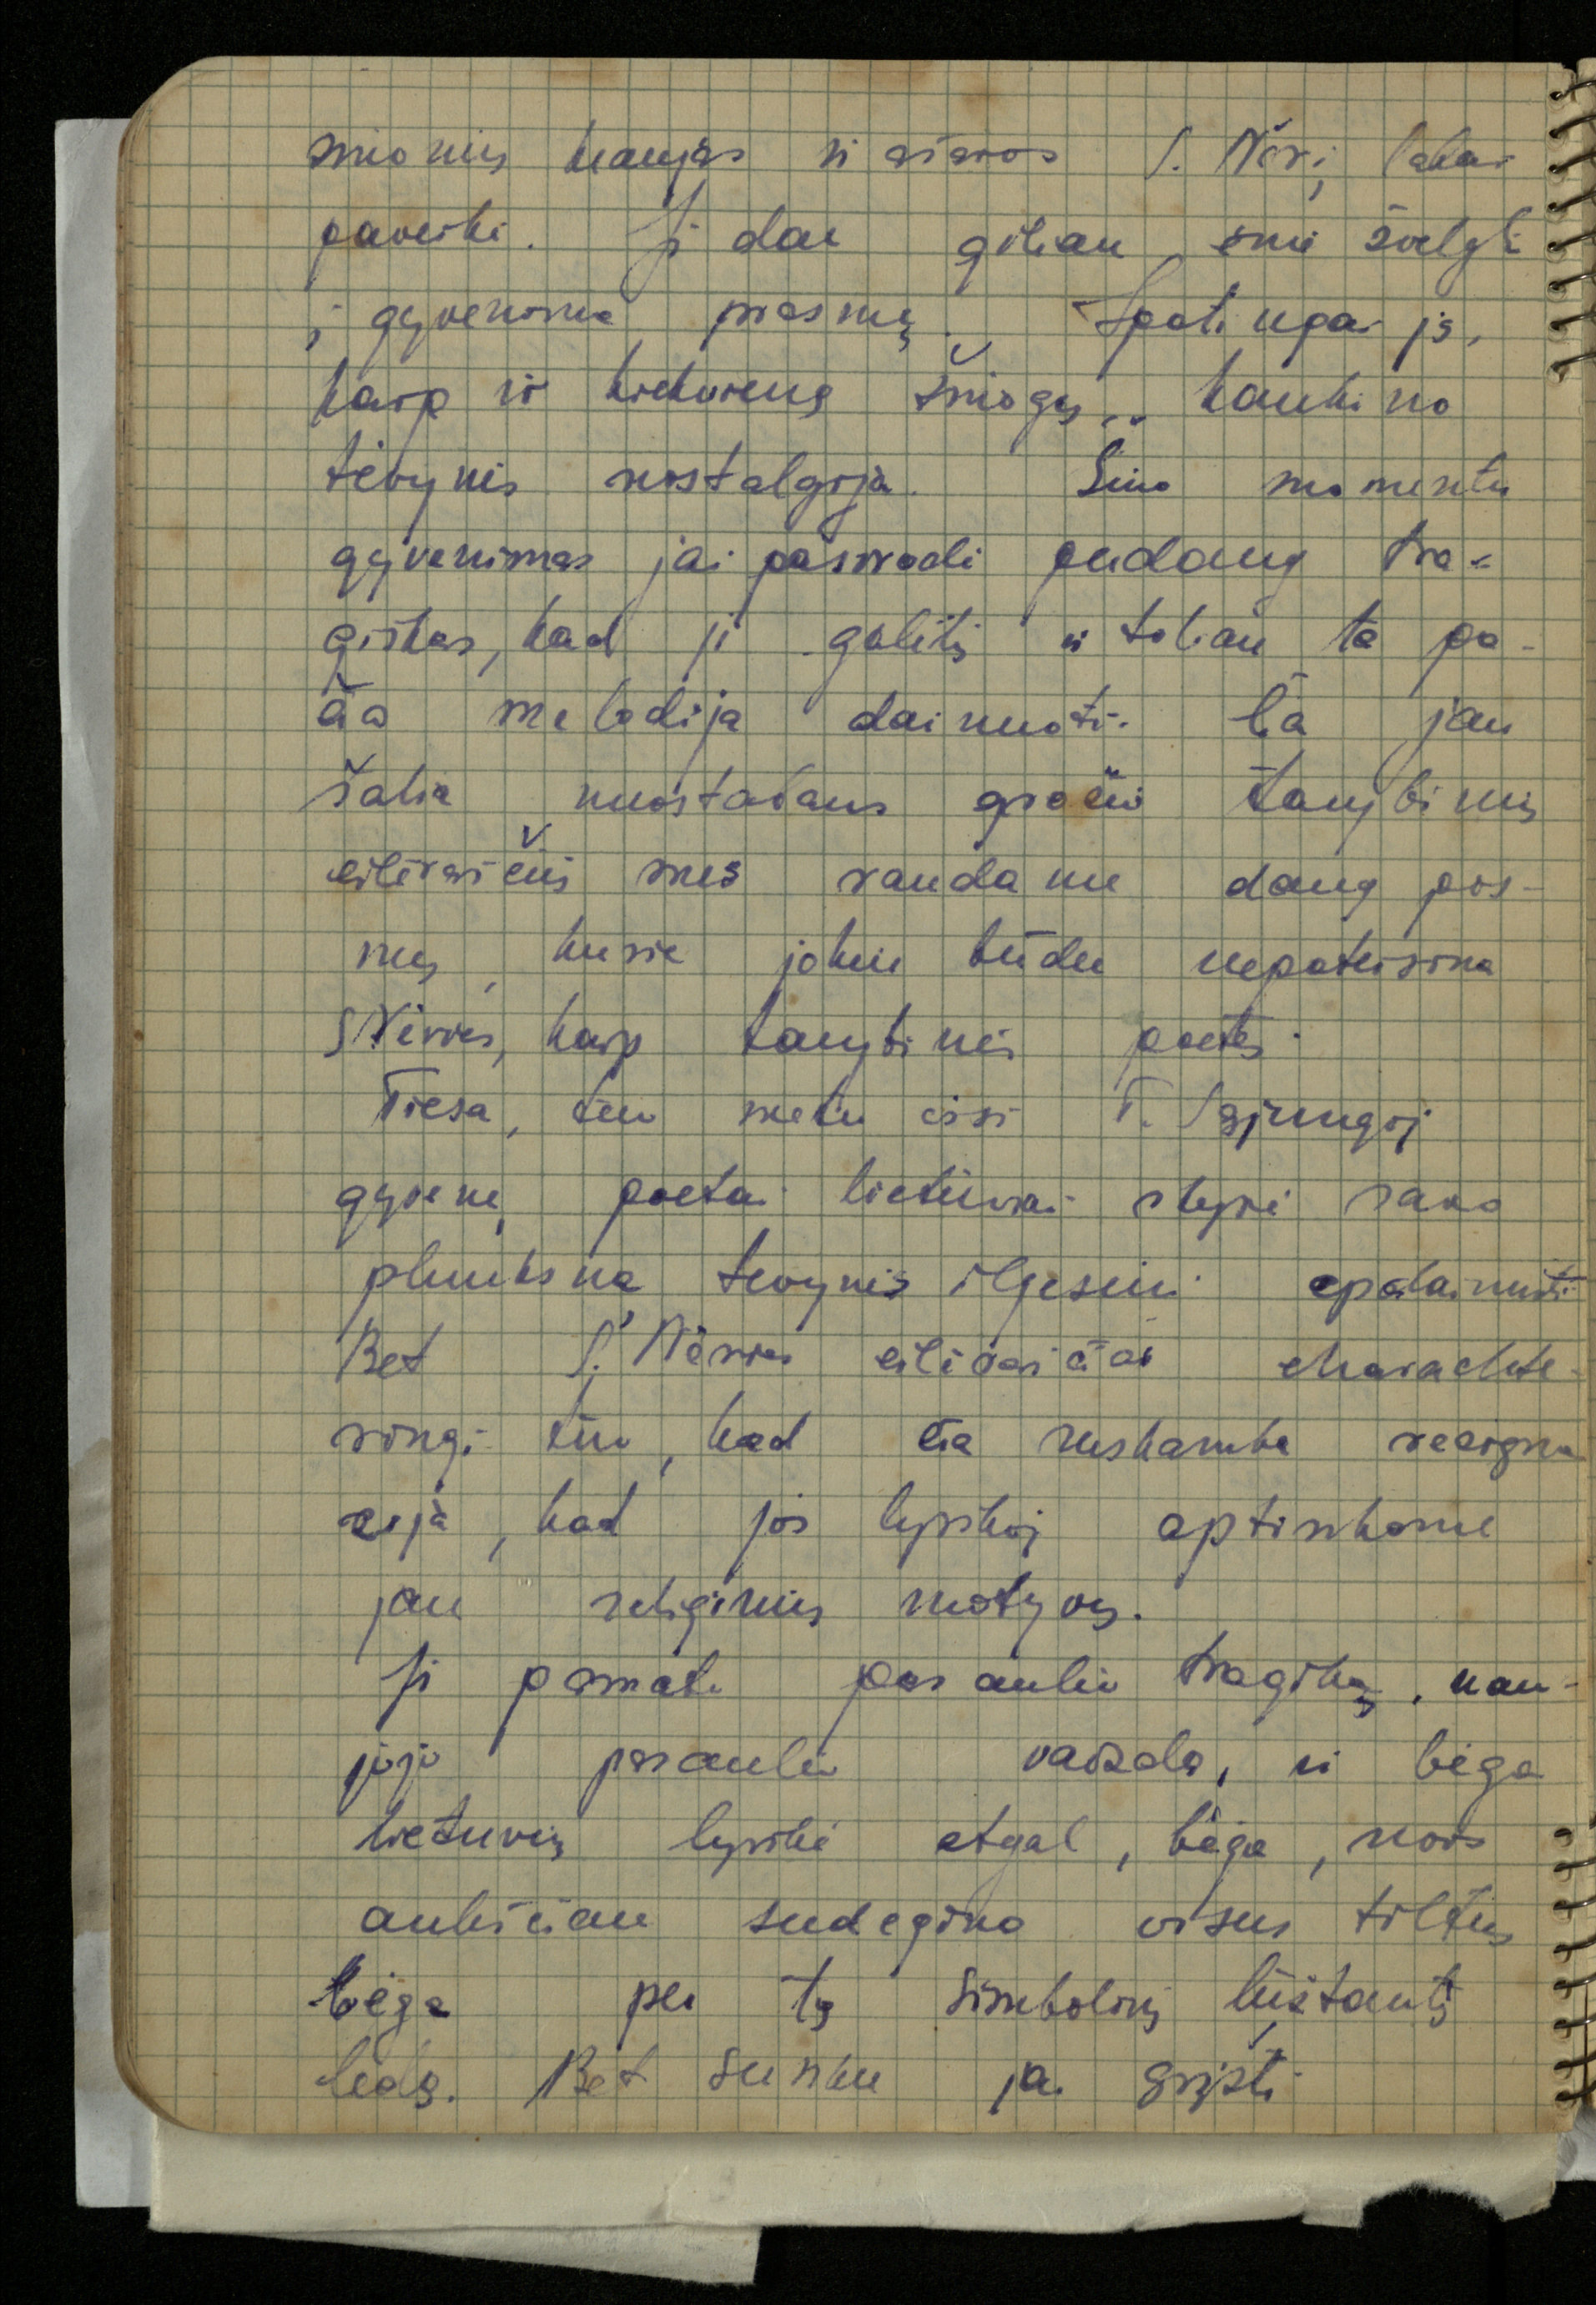 žmonių kraujas ir ašaros S. Nėrį labai
paveikė. Ji dar giliau ėmė žvelgti
į gyvenimo prasmę. Ypatingai ją,
kaip ir kiekvieną žmogų, kankino
tėvynės nostalgija. Šiuo momentu
gyvenimas jai pasirodė perdaug tra-
giškas, kad ji galėtų ir toliau ta pa-
čia melodija dainuoti. Čia jau
šalia nuostabaus grožio tarybinių
eilėraščių mes randame daug pos-
mų, kurie jokiu būdu nepateisina
S Nėries, kaip tarybinės poetės.
Tiesa, tuo metu visi T. Sąjungoj
gyvenę poetai lietuviai skyrė savo
plunksna tėvynės ilgesiui apdainuoti
Bet S. Nėries eilėraščiai charakte-
ringi tuo, kad čia suskamba rezigna
cija, kad jos lyrikoj aptinkame
jau religinius motyvus.
Ji pamatė pasaulio tragiką, nau-
jojo pasaulio vaizdą, ir bėga
lietuvių lyrikė atgal, bėga, nors
anksčiau sudegino visus tiltus
bėga per tą simbolinį lūžtantį
ledą. Bet sunku jai grįžti